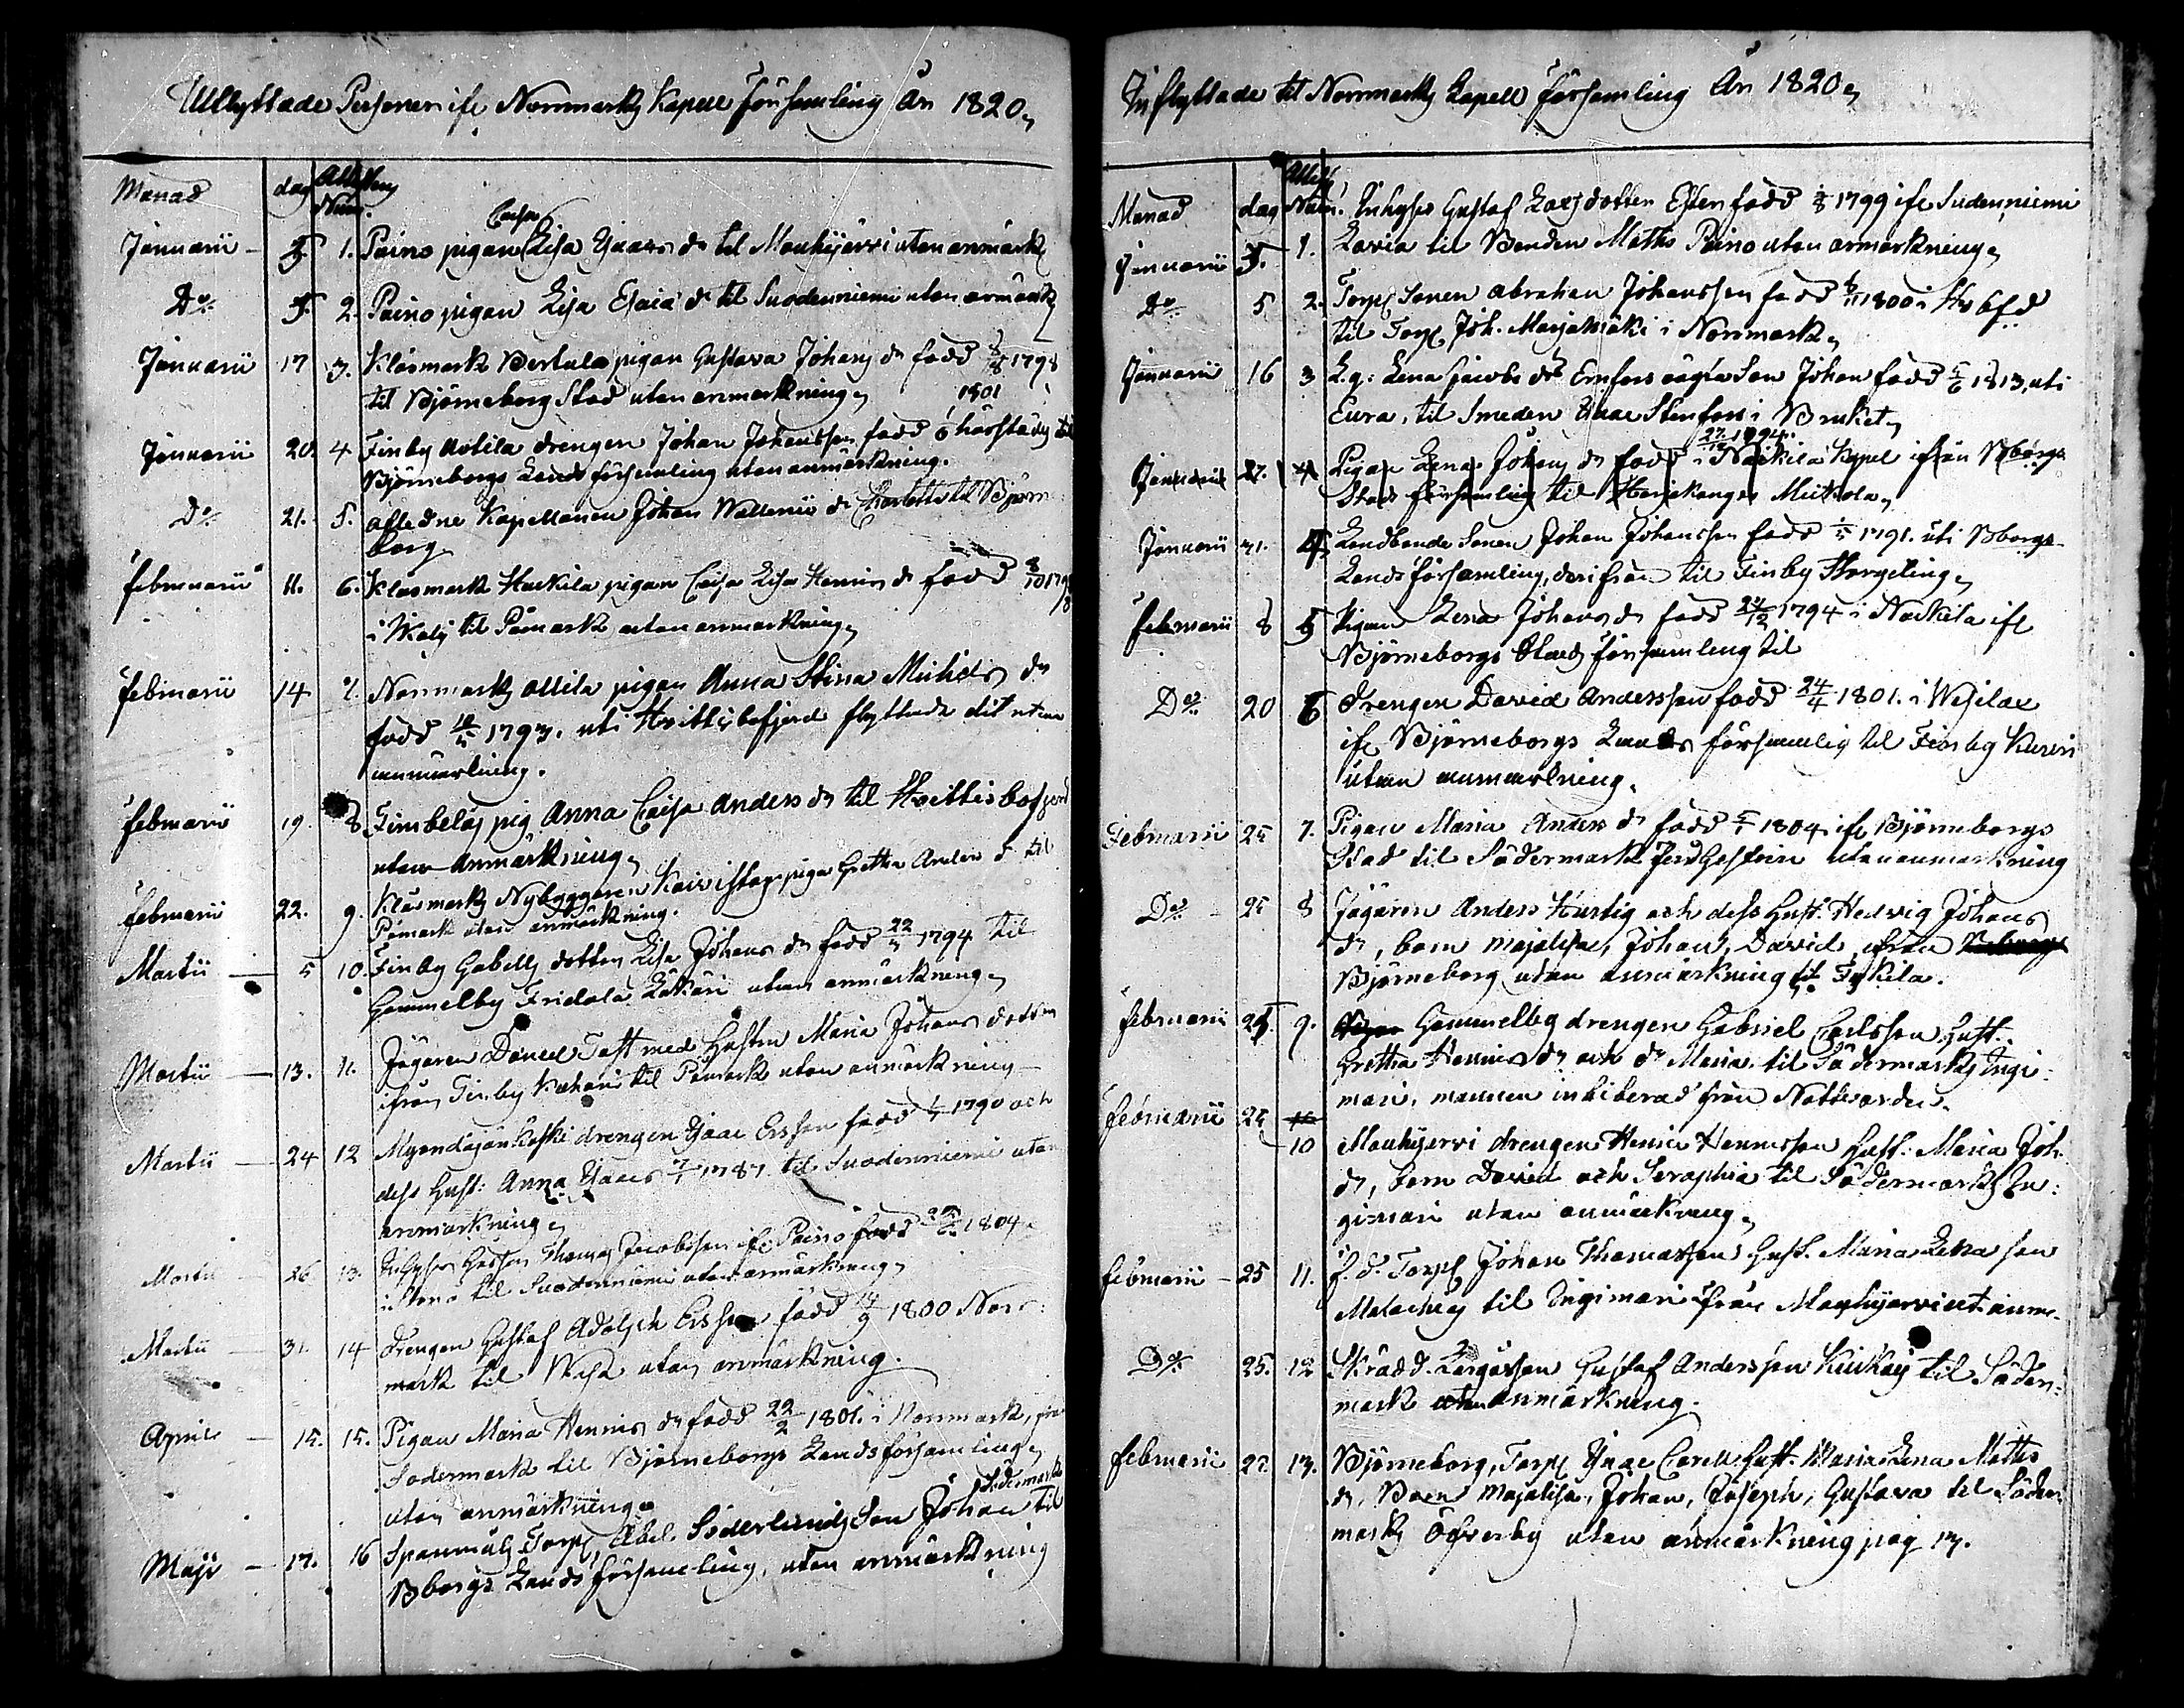 Utflyttade Personer ifr Norrmarks Kapell Församling År 1820
Månad dag Attest Num.
Caisa
Januarii 5 1. Paino pigan Lisa Isaacs dr til Mouhijärvi utan anmärk
Do 5. 2. Paino pigan Lisa Esaiæ dr til Suodenniemi utan anmärk
Januarii 17 3. Klåsmark Bertula pigan Gustava Johans dr född 1798
til Björneborg Stad utan anmärkning
1801
Januarii 20. 4 Finby Ollila drengen Johan Johansson född härstädes til
Björneborgs Lands församling utan anmärkning.
Do 21. 5. afledne Kapellanen Johan Wallenii dr Charlotta til Björne
borg
Februarii 11. 6. Klåsmark Harkila pigan Caisa Lisa Henrics dr född 8/10 179
18
i til Påmark utan anmärkning
Februarii 14 7. Norrmarks Ollila pigan Anna Stina Michels dr
född 1793. uti Hvittisbofjerd flyttade dit utan
anmärkning.
Februarii 19. 8 Finbelás pig Anna Caisa Anders dr til Hvittisbofjerd
utan anmärkning
Februarii 22. 9. Klåsmarks Nybyggaren Koivistos piga Gretha Anders d til
Påmark utan anmärkning.
Martii 5 10. Finby Gabells dotter Lisa Johans dr född 22 1794 til
Gammelby Fridala utan anmärkning
Martii 13. 11. Jägaren Daniel Toft med Hustru Maria Johans dotter
ifrån Finby til Påmark utan anmärkning
Martii 24 12 drengen Isaac Ersson född 1790 och
dess Hust: Anna Isacs 7/1 1787 til Suodenniemi utan
anmärkning
Martii 26 13. Inhyses Thomas Jacobsson ifr Paino född 1804
i til Suodenniemi utan anmärkning
Martii 31. 14 Drengen Gustaf Adolph Ersson född 14/9 1800 Norr:
mark til utan anmärkning.
April 15. 15. Pigan Maria Henrics dr född 22/2 1801. i Norrmark, från
Södermark til Björneborgs Landsförsamling
utan anmärkning
Södermark
Maji 17. 16 Torp. Abel Söderlunds Son Johan til
Bborgs Lands församling, utan anmärkning
Inflyttade til Norrmarks Kapell församling År 1820
Attest
Månad dag Num. Inhyses Gustaf Larsdotter Ester född 1799 ifr Sudenniemi
Januarii 5. 1. Lavia til Bonden Matts Paino utan anmärkning
Do 5 2. Torp. Sonen Abraham Johansson född 6/11 1800 i Hvbfd
til Torp. Joh. Marjamäki i Norrmark
Januarii 16 3 L.g: Lena Jacobs dr Ernfors oägta Son Johan född 5/6 1813, uti
Eura, til Smeden Isaac Stenfors i Bruket
27/12 1794.
Januarii 27. 4 Pigan Lena Johans dr född i Nackila Kapel ifrån Bborgs
Stads församling til Harjakangas Mickola
Januarii 31. 4 Landbonde Sonen Johan Johansson född 1791. uti Bborgs
Landsförsamling, derifrån til Finby
Februarii 8 5 Pigan Lena Johans dr född 27/12 1794 i Nackila ifr
Björneborgs Stads församling til
Do 20 6 Drengen David Andersson född 24/4 1801. i Wesilax
ifr Björneborgs Lands församlig til Finby
utan anmärkning.
Februarii 25 7. Pigan Maria Anders dr född 1804 ifr Björneborgs
Stad til Södermark utan anmärkning
Do 25 8 Jägaren Anders Hurtig och dess Hust. Hedvig Johans
dr, barn Majalisa, Johan, David ifrån
Björneborg utan anmärkning til Tykila.
Februarii 25. 9. Gammelby drengen Gabriel Carlsson Hust.
Gretha Henrics dr och dr Maria til Södermarks Ingi:
mari, mannen inhiberad från Nattvarden
Februarii 25
10 Mouhijervi drengen Henric Henricsson Hust: Maria Joh.
dr, barn David och Seraphia til Södermarks In:
gimari utan anmärkning
Februarii 25 11. f. d. Torp. Johan Thomasson Hust. Maria Lena son
Malachias til Ingimari ifrån Mouhijervi ut. anm.
Do 25. 12 Skradd. Gustaf Andersson til Söder:
mark utan anmärkning.
Februarii 27. 13. Björneborg, Torp. Isaac Hust. Maria Lena Matts
dr, Barn Majalisa, Johan, Joseph, Gustava til Söder
marks Öfverby utan anmärkning pag 17.